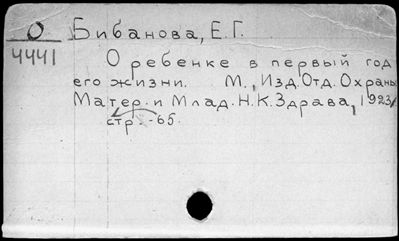 О Бибанова, Е.Г.
4441
О ребенке в первый год
его жизни. М., Изд. Отд. Охраны
Матер. и Млад. Н.К.Здрава, 1923,
стр. - 65.